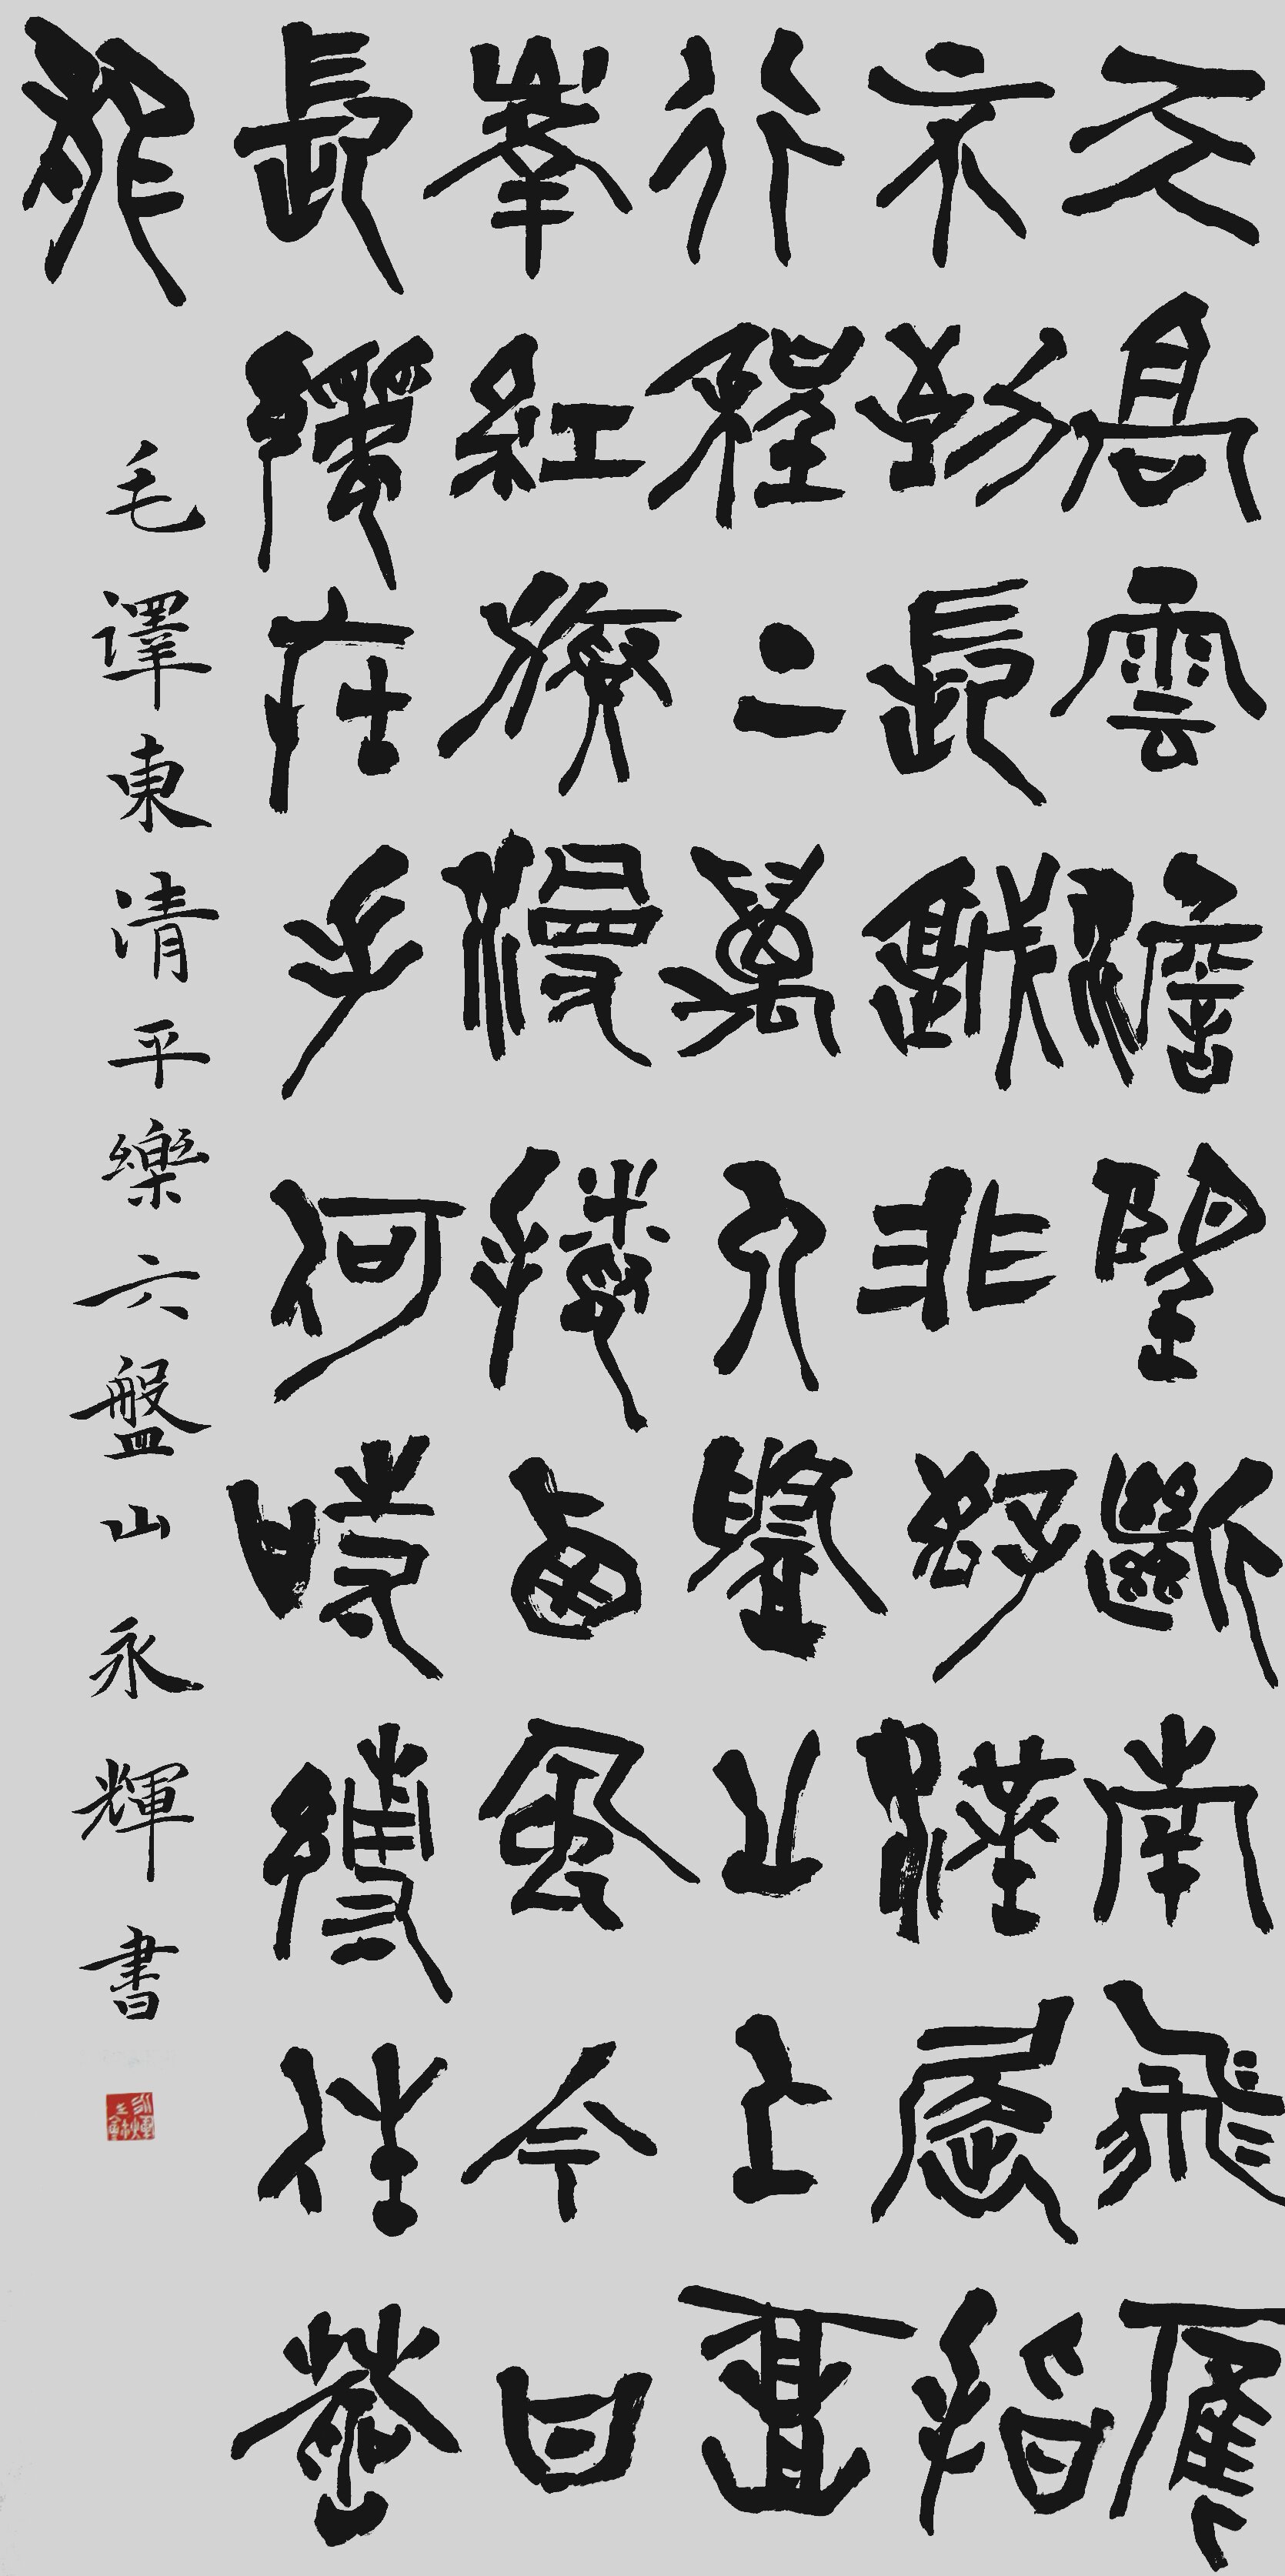 天高雲澹望斷南飛雁
不到長城非好漢屈指
行程二萬六盤山上高
峯紅旗漫捲西風今日
長纓在手何時縛住蒼
龍
毛澤東清平樂六盤山永輝書